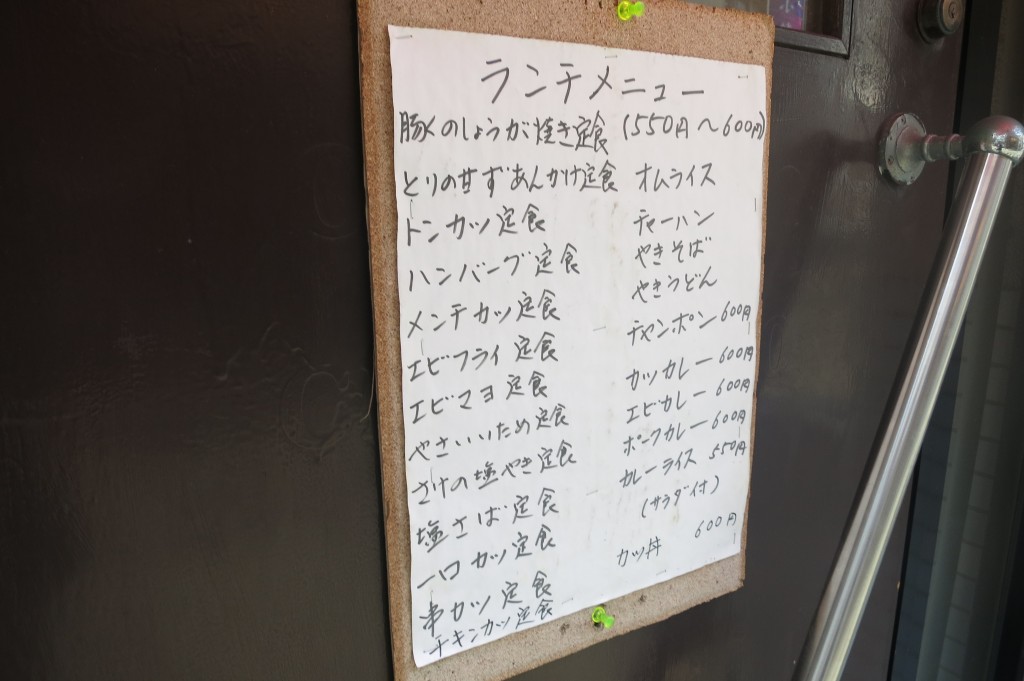 ランチメニュー
豚肉のしょうが焼き定食 (550円〜600円)
とりの甘ずあんかけ定食
トンカツ定食
ハンバーグ定食
メンチカツ定食
エビフライ定食
エビマヨ定食
やさいいため定食
さけの塩やき定食
塩さば定食
一口カツ定食
串カツ定食
チキンカツ定食
オムライス
チャーハン
やきそば
やきうどん
チャンポン 600円
カツカレー 600円
エビカレー 600円
ポークカレー 600円
カレーライス 550円
(サラダ付)
カツ丼 600円